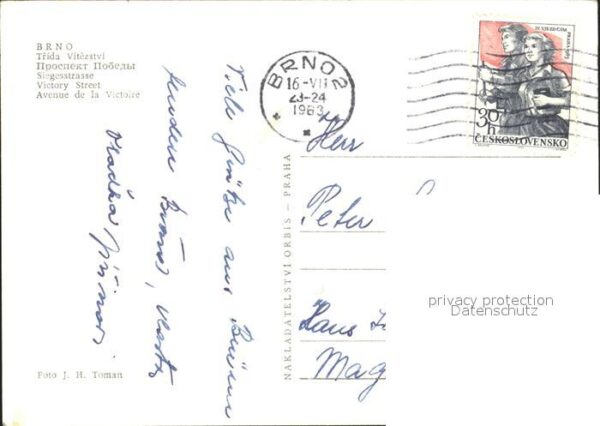 BRNO
Třída Vítězství
Проспект Победы
Siegesstrasse
Victory Street
Avenue de la Victoire
Viele Grüße aus Brünn
senden
Vladka
Foto J. H. Toman
NAKLADATELSTVÍ ORBIS – PRAHA
BRNO 2
16.-VII
23-24
1963
30 h
ČESKOSLOVENSKO
Herr
Peter
Hans
Mag
privacy protection
Datenschutz